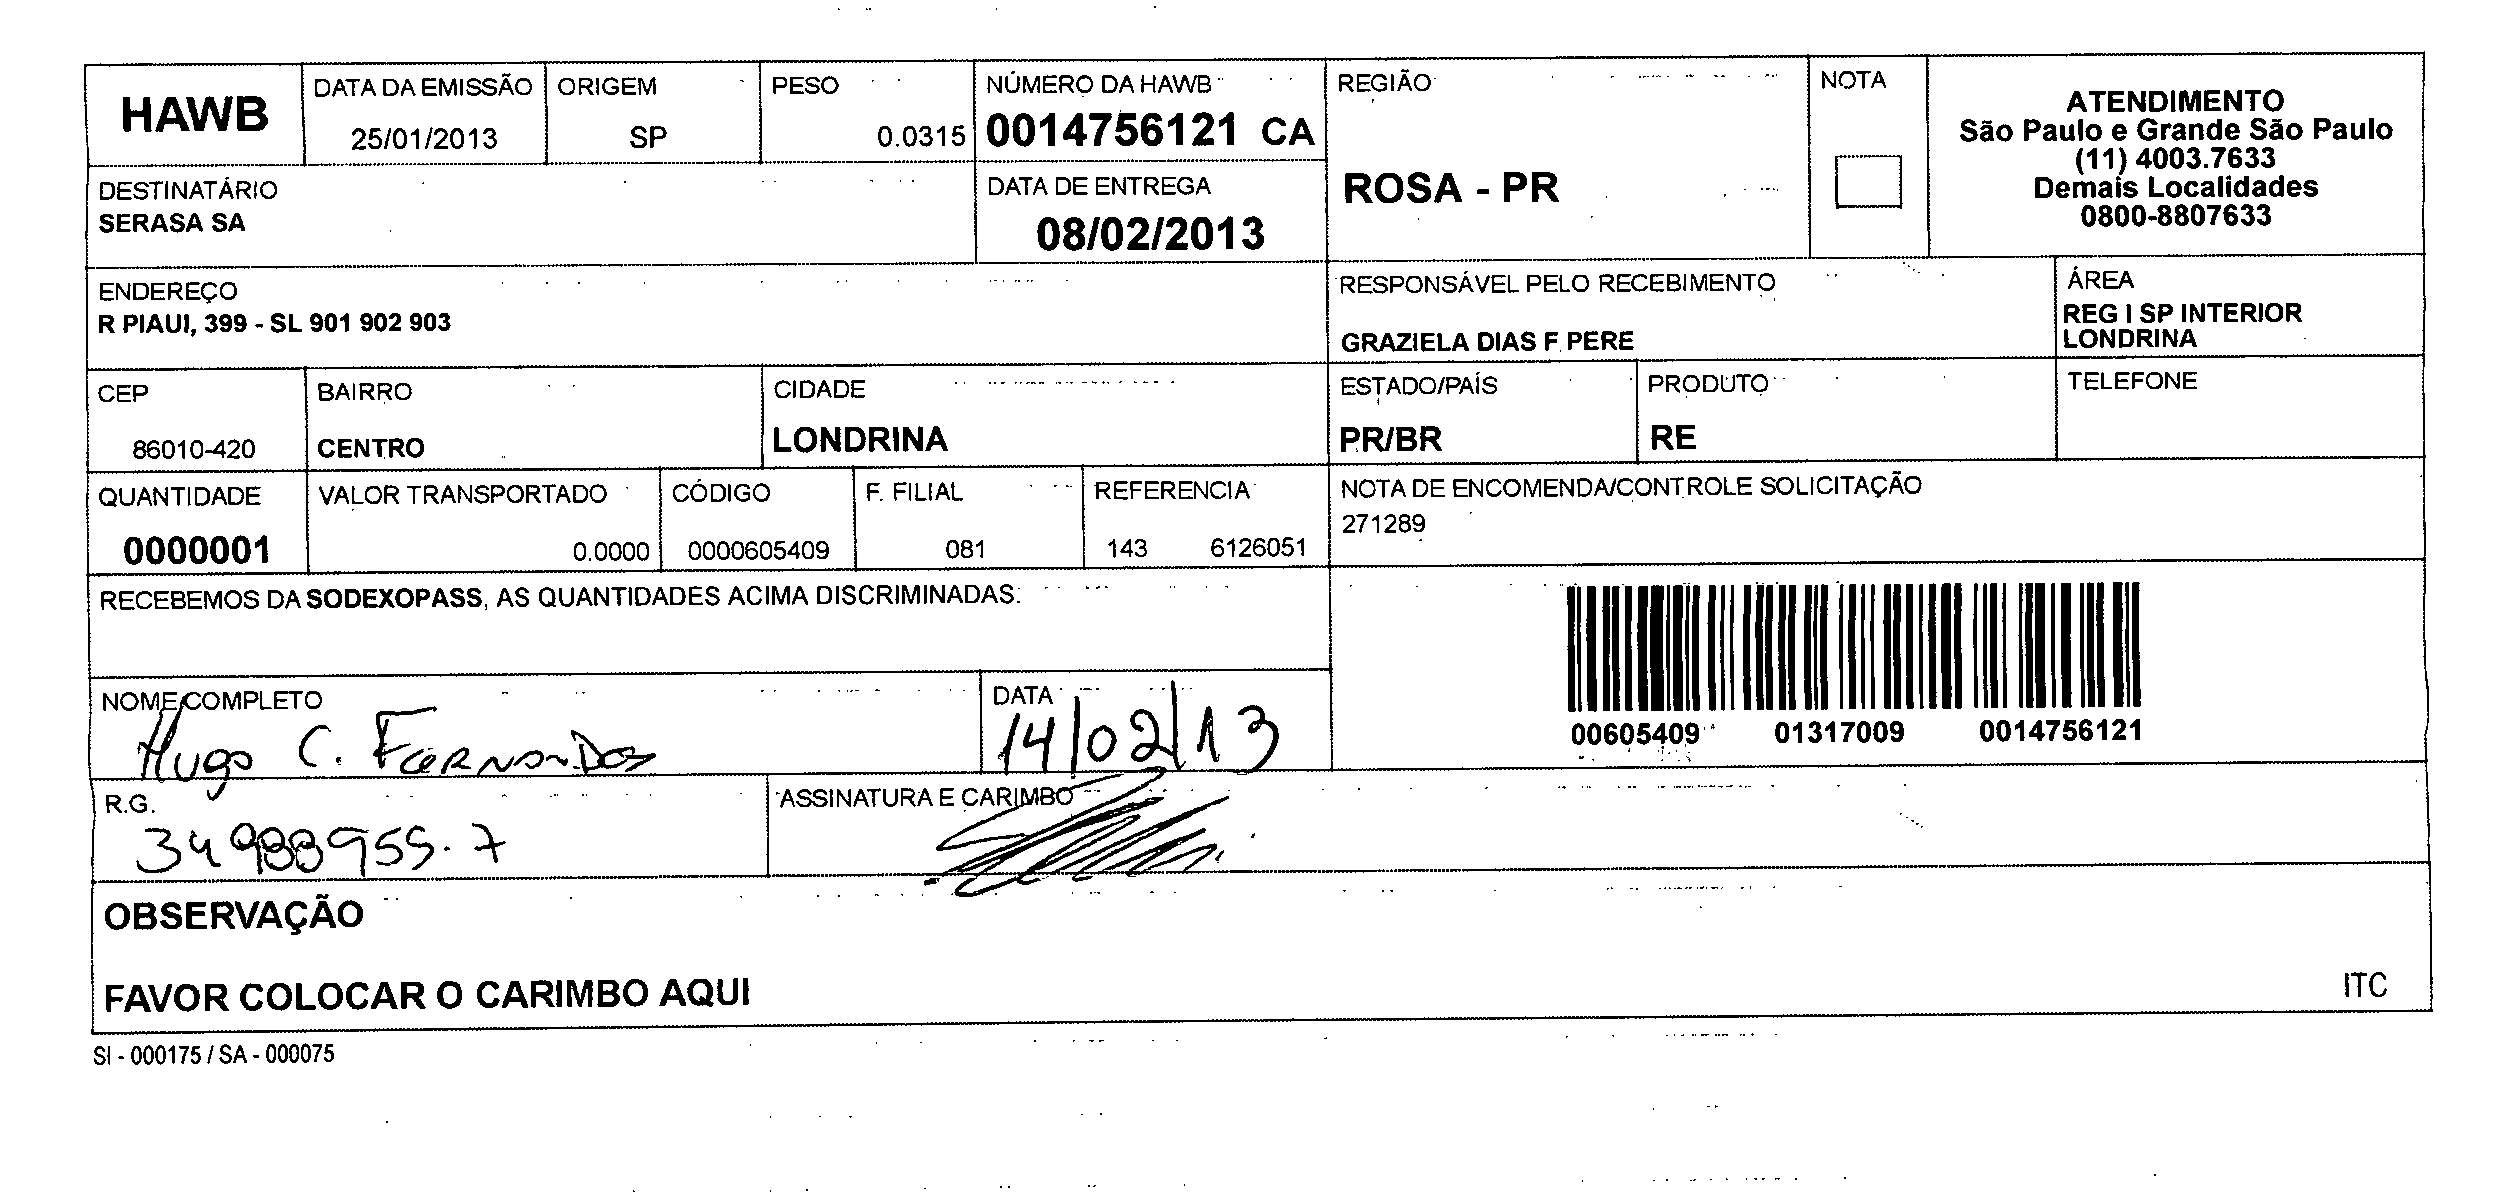 HAWB
DATA DA EMISSÃO
25/01/2013
ORIGEM
SP
PESO
0.0315
NÚMERO DA HAWB
0014756121 CA
REGIÃO
ROSA - PR
NOTA
ATENDIMENTO
São Paulo e Grande São Paulo
(11) 4003.7633
Demais Localidades
0800-8807633
DESTINATÁRIO
SERASA SA
DATA DE ENTREGA
08/02/2013
ENDEREÇO
R PIAUI, 399 - SL 901 902 903
RESPONSÁVEL PELO RECEBIMENTO
GRAZIELA DIAS F PERE
ÁREA
REG I SP INTERIOR
LONDRINA
CEP
86010-420
BAIRRO
CENTRO
CIDADE
LONDRINA
ESTADO/PAÍS
PR/BR
PRODUTO
RE
TELEFONE
QUANTIDADE
0000001
VALOR TRANSPORTADO
0.0000
CÓDIGO
0000605409
F. FILIAL
081
REFERENCIA
143 6126051
NOTA DE ENCOMENDA/CONTROLE SOLICITAÇÃO
271289
RECEBEMOS DA SODEXOPASS, AS QUANTIDADES ACIMA DISCRIMINADAS:
00605409 01317009 0014756121
NOME COMPLETO
Hugo C. Fernandes
DATA
14/02/13
R.G.
34988955-7
ASSINATURA E CARIMBO
OBSERVAÇÃO
FAVOR COLOCAR O CARIMBO AQUI
ITC
SI - 000175 / SA - 000075